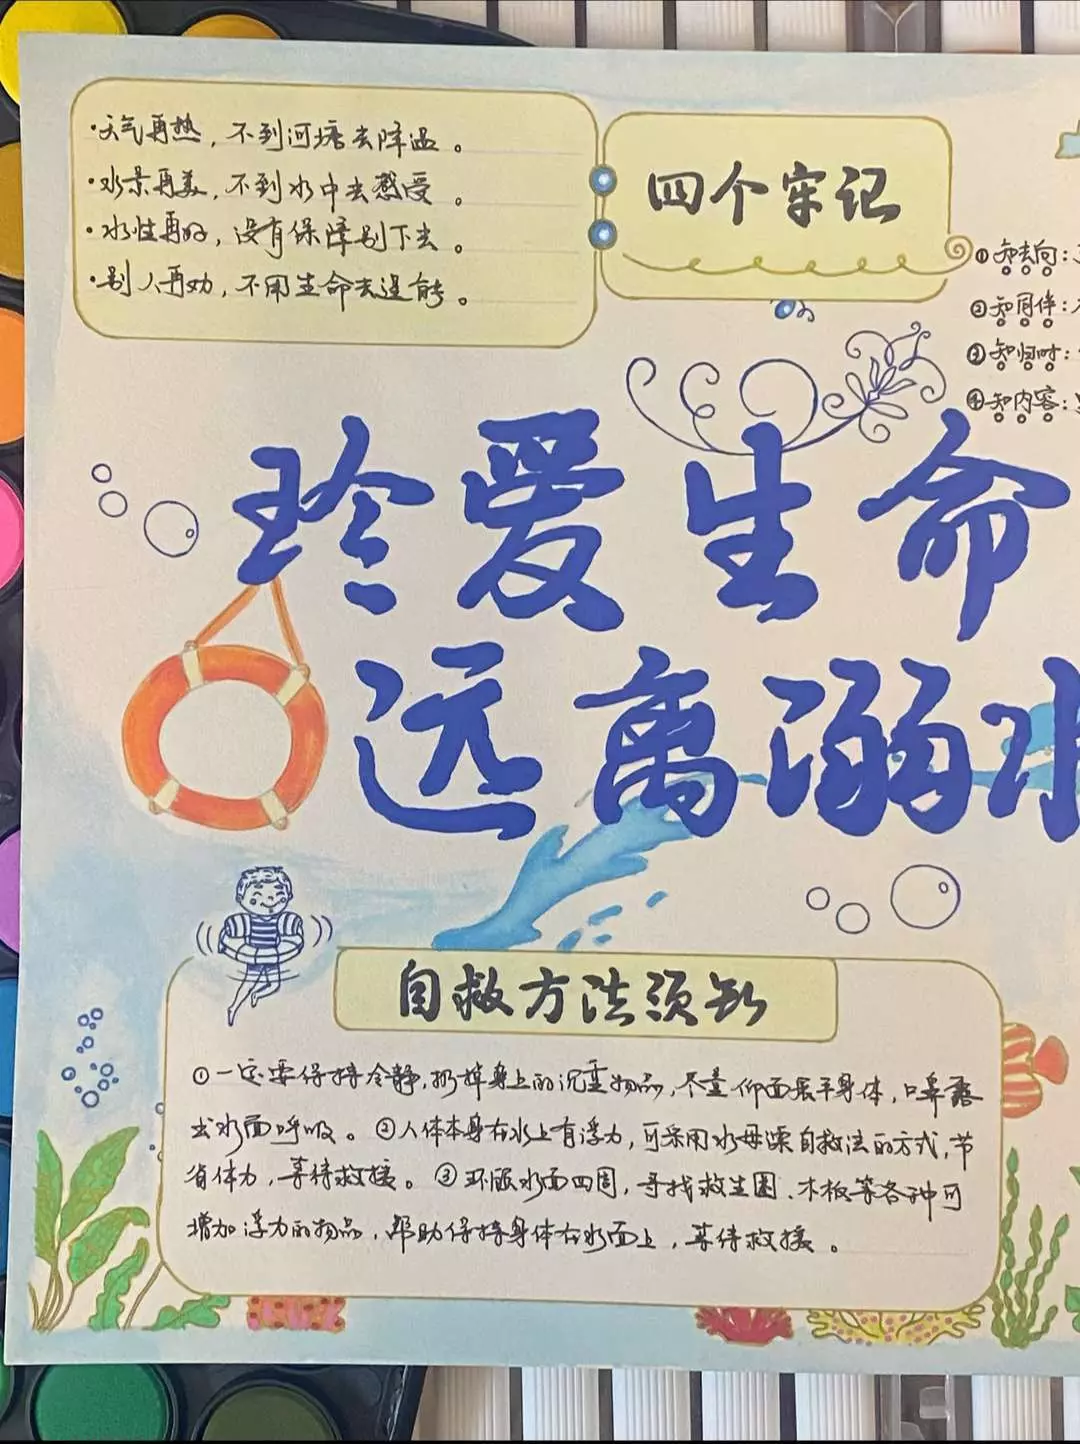 ·天气再热，不到河塘去降温。
·水景再美，不到水中去感受。
·水性再好，没有保障别下去。
·别人再劝，不用生命去逞能。
四个牢记
①知去向：
②知同伴：
③知归时：
④知内容：
珍爱生命
远离溺水
自救方法须知
①一定要保持冷静，扔掉身上的沉重物品，尽量仰面展平身体，口鼻露
出水面呼吸。②人体本身在水上有浮力，可采用水母漂自救法的方式，节
省体力，等待救援。③环顾水面四周，寻找救生圈、木板等各种可
增加浮力的物品，帮助保持身体在水面上，等待救援。